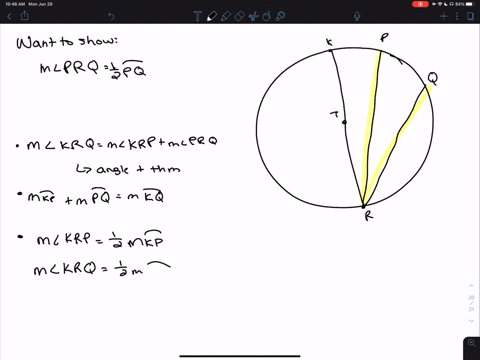 10:46 AM Mon Jun 29
Want to show:
m∠PRQ = 1/2 PQ
• m∠KRQ = m∠KRP + m∠PRQ
↳ angle + thm
• mKP + mPQ = mKQ
• m∠KRP = 1/2 mKP
m∠KRQ = 1/2 m
K
P
Q
T
R